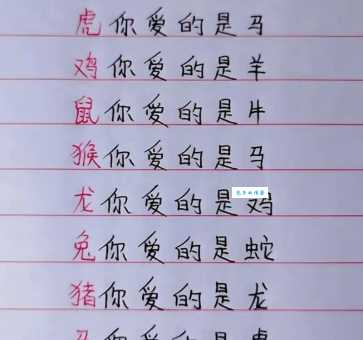 虎你爱的是马
鸡你爱的是羊
鼠你爱的是牛
猴你爱的是马
龙你爱的是鸡
兔你爱的是蛇
猪你爱的是龙
马你爱的是虎